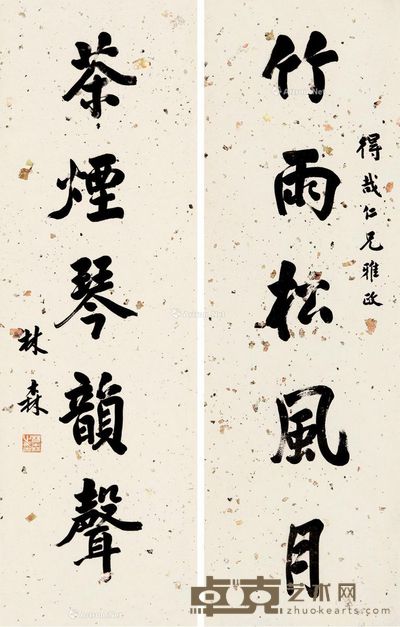 得哉仁兄雅政
竹雨松風月
茶煙琴韻聲
林森
卓克艺术网
zhuokearts.com